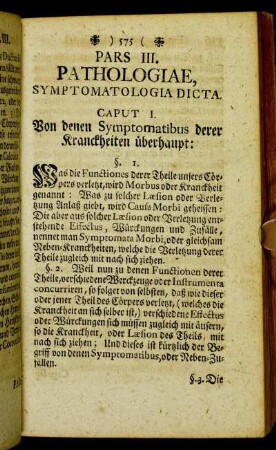 ) 575 (
PARS III.
PATHOLOGIAE,
SYMPTOMATOLOGIA DICTA.
CAPUT I.
Von denen Symptomatibus derer
Kranckheiten überhaupt:
§. 1.
Was die Functiones derer Theile unsers Cör-
pers verletzt, wird Morbus oder Kranckheit
genannt: Was zu solcher Læsion oder Verle-
tzung Anlaß giebt, wird Causa Morbi geheissen:
Die aber aus solcher Læsion oder Verletzung ent-
stehende Effectus, Würckungen und Zufälle,
nennet man Symptomata Morbi, oder gleichsam
Neben-Kranckheiten, welche die Verletzung derer
Theile zugleich mit nach sich ziehen.
§. 2. Weil nun zu denen Functionen derer
Theile, verschiedene Werckzeuge oder Instrumenta
concurriren, so folget von selbsten, daß wie dieser
oder jener Theil des Cörpers verletzt, (welches die
Kranckheit an sich selber ist,) verschiedene Effectus
oder Würckungen sich müssen zugleich mit äusern,
so die Kranckheit, oder Læsion des Theils mit
nach sich ziehen; Und dieses ist kürtzlich der Be-
griff von denen Symptomatibus, oder Neben-Zu-
fällen.
§. 3. Die